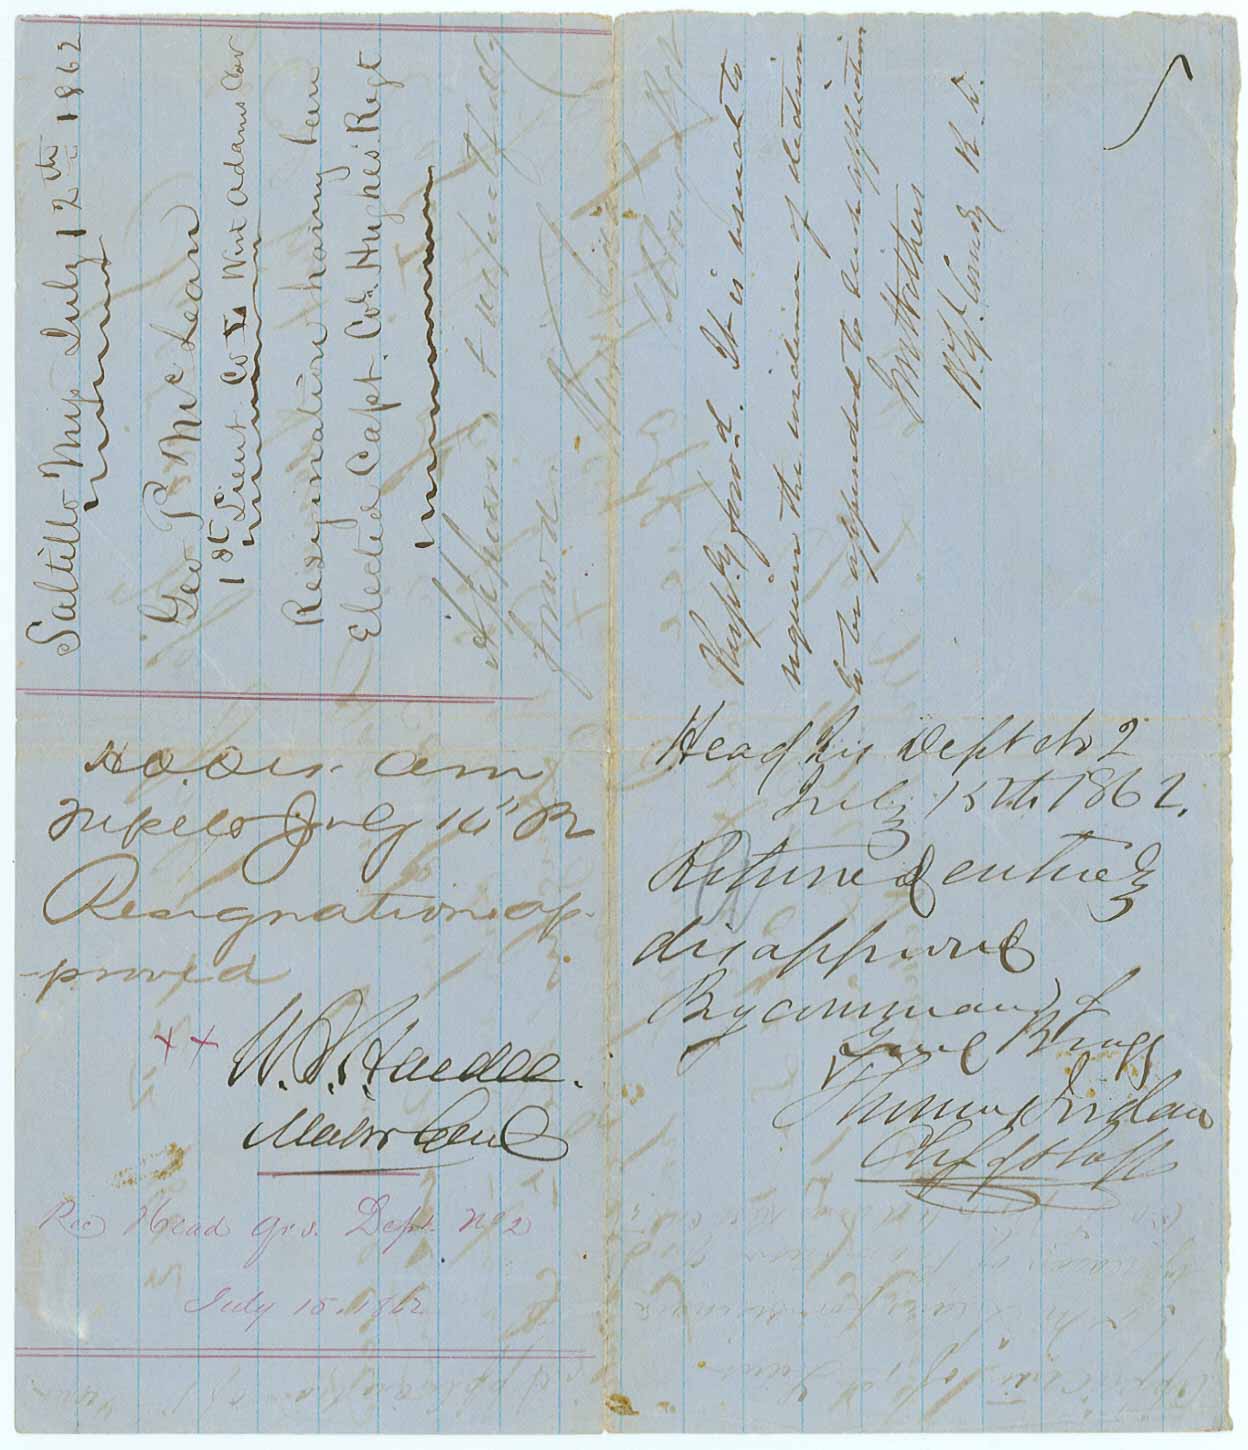 Saltillo Miss July 12th 1862
Geo P. McLean
1st Lieut Co I Wirt Adams Cav
Resignation having been
Elected Capt. Col. Hughes' Regt
Approved & respectfully
forwd
Respty forwd. It is usual to
require the evidence of election
to be appended to such application
Hd Qrs. Am
Tupelo July 14" 62
Resignation ap-
proved
W. J. Hardee.
Major Genl
Rec Head Qrs. Dept. No 2
July 15. 1862
Head Qrs Dept No 2
July 15th 1862.
Returned entirely
disapproved
By command of
Genl Bragg
Thomas Jordan
Chf of Staff